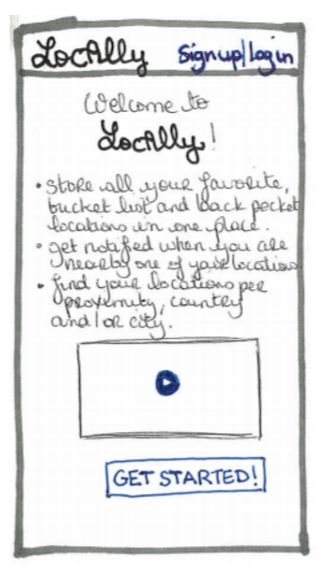 LocAlly Sign up/login
Welcome to
LocAlly!
• store all your favorite,
bucket list and back pocket
locations in one place.
• get notified when you are
nearby one of your locations
• find your locations per
proximity, country
and/or city.
GET STARTED!